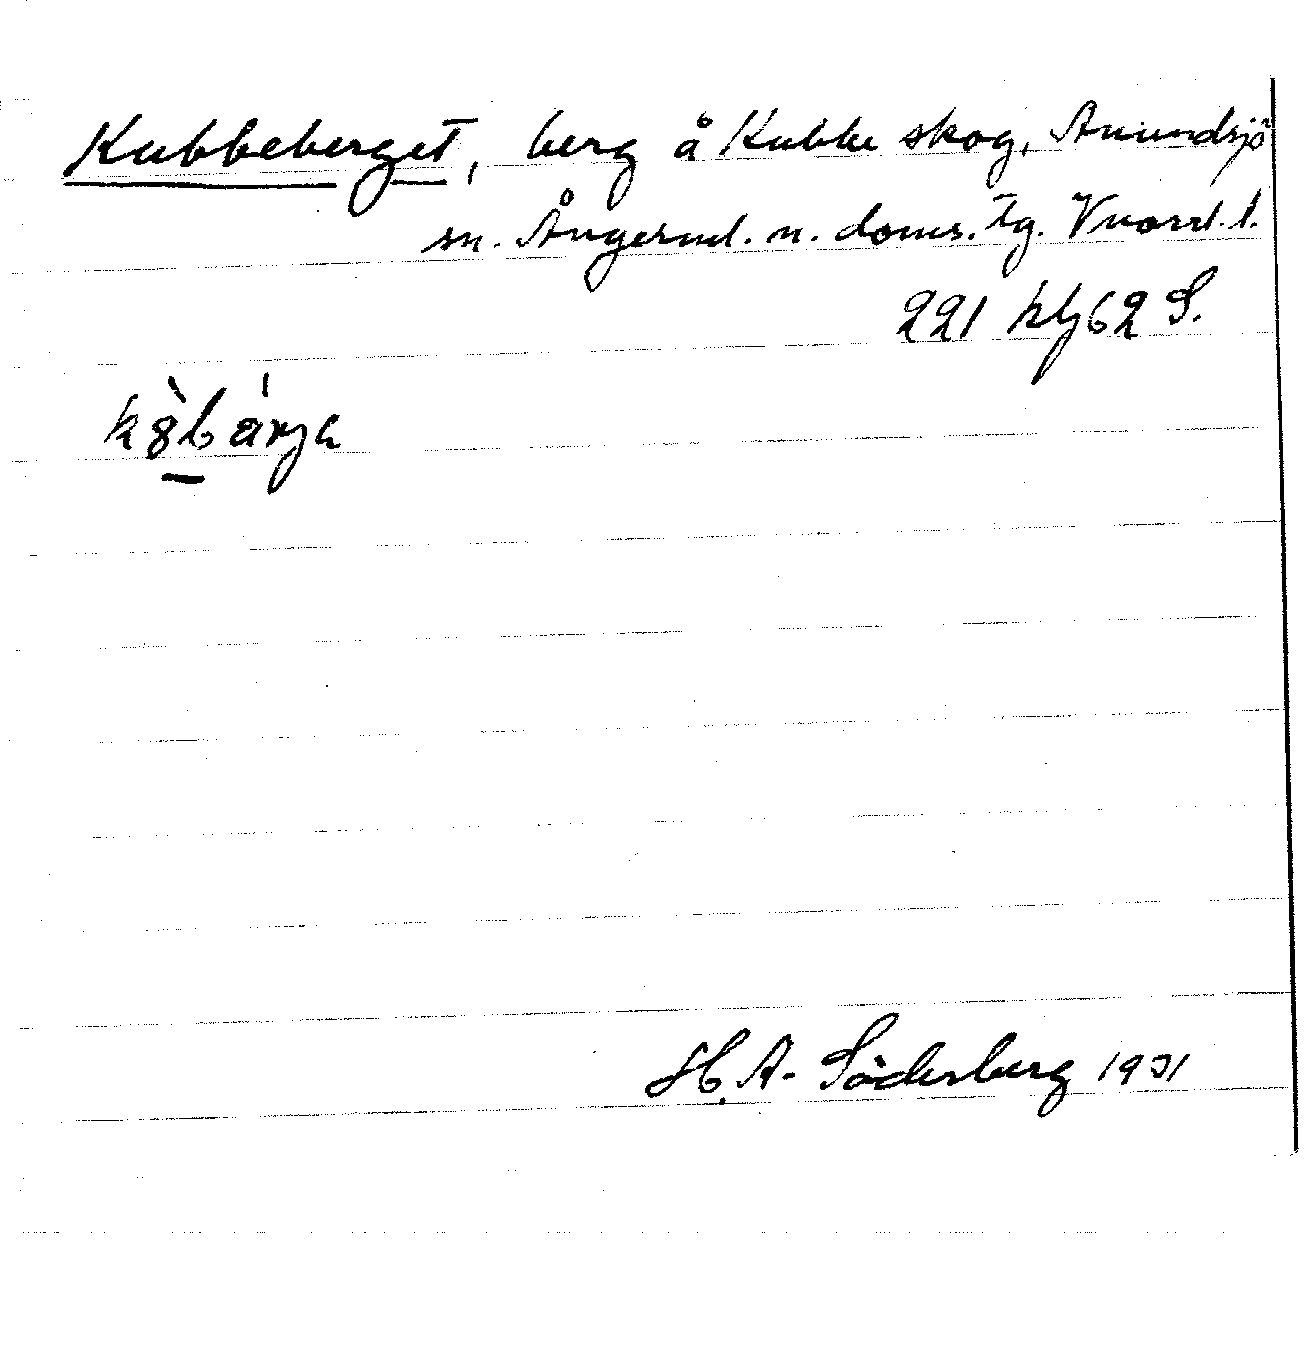 Kubbeberget, berg å Kubbe skog, Anundsjö
sn. Ångerml. n. doms. tg. Vnorrl. l.
221 kbg 62 S.
kȣ̀bárja
H. A. Söderberg 1931